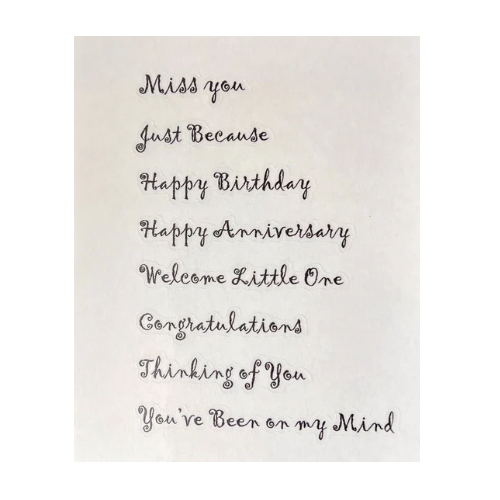 Miss you
Just Because
Happy Birthday
Happy Anniversary
Welcome Little One
Congratulations
Thinking of You
You've Been on my Mind